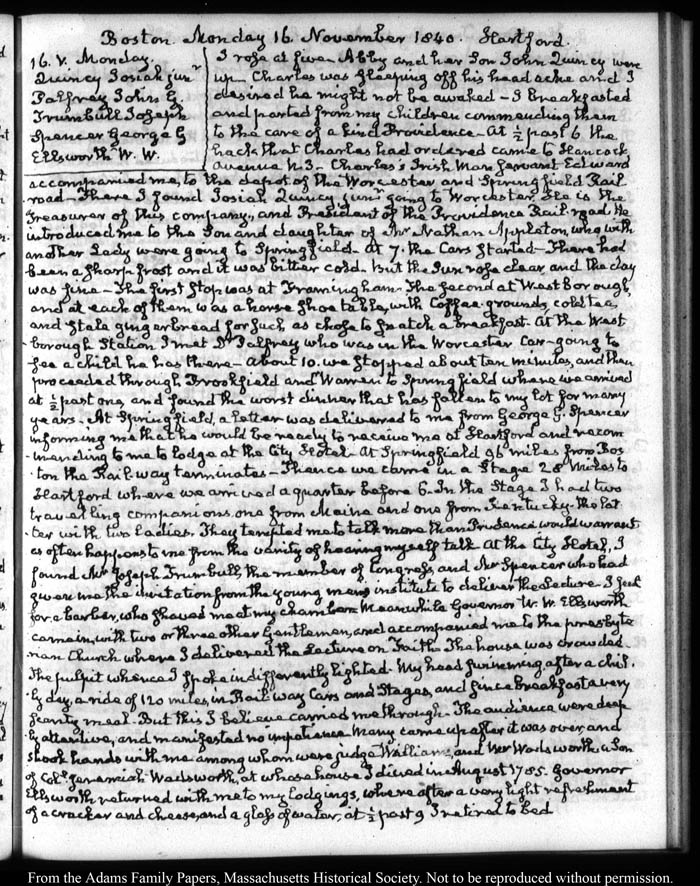 Boston Monday 16 November 1840. Hartford.
16. V. Monday.
Quincy Josiah junr
Palfrey John G.
Trumbull Joseph
Spencer George G
Ellsworth W. W.
I rose at five. Abby and her Son John Quincy were
up. Charles was sleeping off his head ache and I
desired he might not be awaked – I breakfasted
and parted from my children commending them
to the care of a kind Providence – At ½ past 6 the
hack that Charles had ordered came to Hancock
avenue N. 3 – Charles's Irish Man Servant Edward
accompanied me, to the depot of the Worcester and Springfield Rail
road – There I found Josiah Quincy junr going to Worcester. He is the
Treasurer of this company, and President of the Providence Rail-road. He
introduced me to the Son and daughter of Mr Nathan Appleton, who with
another Lady were going to Springfield – At 7. the Cars started – There had
been a sharp frost and it was bitter cold. but the Sun rose clear, and the day
was fine – The first stop was at Framingham. The second at Westborough,
and at each of them was a horse shoe table, with Coffee-grounds, cold tea,
and stale gingerbread for such as chose to snatch a breakfast. At the West-
borough Station I met Dr Palfrey who was in the Worcester Car – going to
see a child he has there – About 10. we stopped about ten minutes, and then
proceeded through Brookfield and Warren to Springfield where we arrived
at ½ past one, and found the worst dinner that has fallen to my lot for many
years – At Springfield, a letter was delivered to me from George G. Spencer
informing me that he would be ready to receive me at Hartford and recom
mending to me to lodge at the City Hotel – At Springfield 96 miles from Bos
ton the Rail-way terminates – Thence we came in a Stage 28 Miles to
Hartford where we arrived a quarter before 6 – In the Stage I had two
travelling companions, one from Maine and one from Kentucky – the lat
ter with two Ladies. They tempted me to talk more than Prudence would warrant
as often happens to me from the vanity of hearing myself talk. At the City Hotel, I
found Mr Joseph Trumbull, the member of Congress, and Mr Spencer who had
given me the invitation from the young men's institute to deliver the Lecture. I sent
for a barber, who shaved me at my chamber. Meanwhile Governor W. W. Ellsworth
came in, with two or three other Gentlemen, and accompanied me to the presbyte
rian Church where I delivered the Lecture on Faith. The house was crowded.
The pulpit whence I spoke indifferently lighted. My head swimming after a chil
ly day, a ride of 120 miles, in Rail-way Cars and Stages, and since breakfast a very
scanty meal. But this I believe carried me through. The audience were deep
ly attentive, and manifested no impatience. Many came up after it was over, and
shook hands with me among whom were judge Williams, and Mr Wadsworth, a Son
of Coll. Jeremiah Wadsworth, at whose house I dined in August 1785. Governor
Ellsworth returned with me to my lodgings, where after a very light refreshment
of a cracker and cheese, and a glass of water, at ½ past 9 I retired to bed
From the Adams Family Papers, Massachusetts Historical Society. Not to be reproduced without permission.